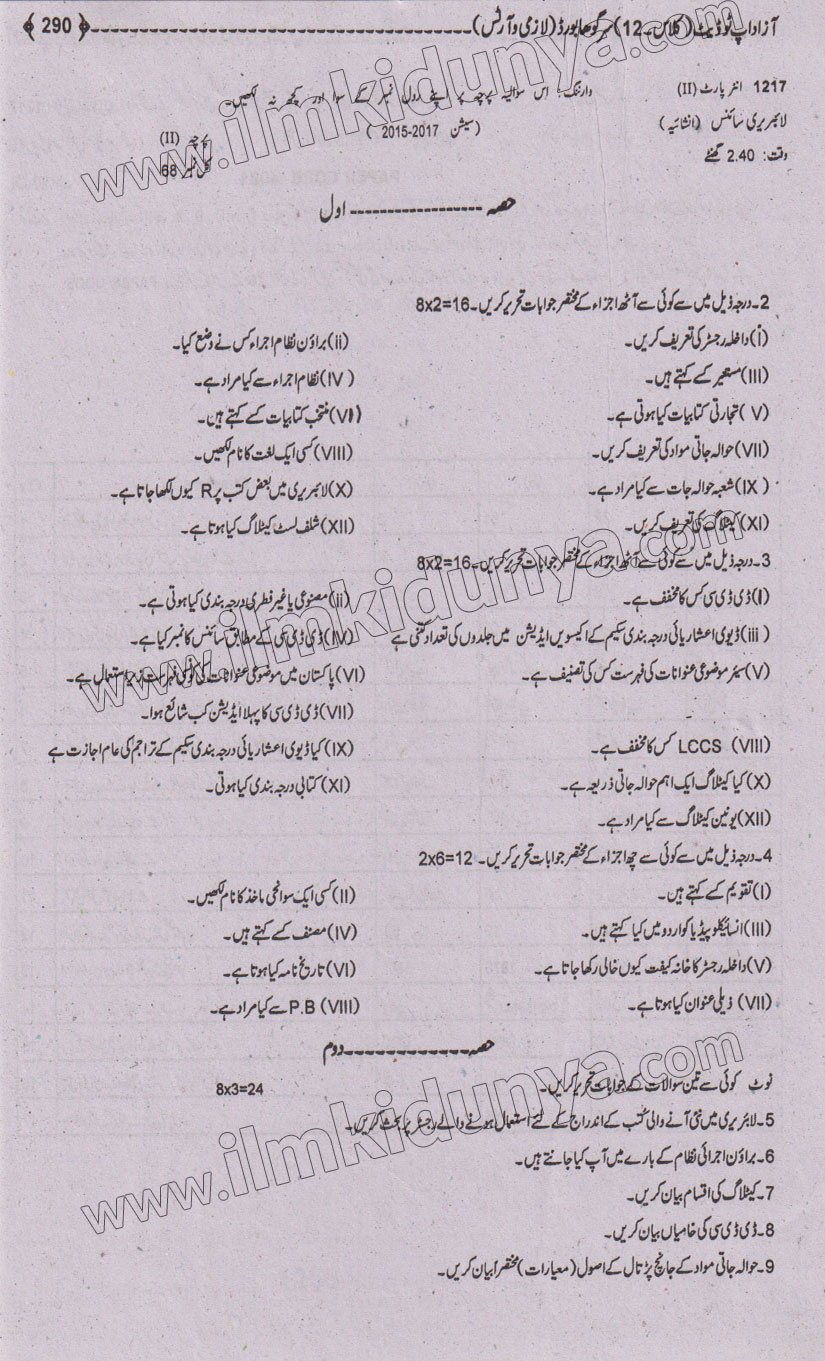 آزاد اپ ٹو ڈیٹ (کلاس۔12) سرگودھا بورڈ (لازمی و آرٹس) ﴿290﴾
1217 انٹر پارٹ (II) وارننگ: اس سوالیہ پرچہ پر اپنے رول نمبر کے سوا اور کچھ نہ لکھیں۔
لائبریری سائنس (انشائیہ) (سیشن 2017-2015) پرچہ (II)
وقت: 2.40 گھنٹے کل نمبر 68
حصہ ---------------- اول
2۔درجہ ذیل میں سے کوئی سے آٹھ اجزاء کے مختصر جوابات تحریر کریں۔ 8x2=16
(i) داخلہ رجسٹر کی تعریف کریں۔ (ii) براؤن نظام اجراء کس نے وضع کیا۔
(III) مستعیر کسے کہتے ہیں۔ (IV) نظام اجراء سے کیا مراد ہے۔
(V) تجارتی کتابیات کیا ہوتی ہے۔ (VI) منتخب کتابیات کسے کہتے ہیں۔
(VII) حوالہ جاتی مواد کی تعریف کریں۔ (VIII) کسی ایک لغت کا نام لکھیں۔
(IX) شعبہ حوالہ جات سے کیا مراد ہے۔ (X) لائبریری میں بعض کتب پر R کیوں لکھا جاتا ہے۔
(XI) کیٹلاگ کی تعریف کریں۔ (XII) شلف لسٹ کیٹلاگ کیا ہوتا ہے۔
3۔درجہ ذیل میں سے کوئی سے آٹھ اجزاء کے مختصر جوابات تحریر کریں۔ 8x2=16
(I) ڈی ڈی سی کس کا مخفف ہے۔ (ii) مصنوعی یا غیر فطری درجہ بندی کیا ہوتی ہے۔
(iii) ڈیوی اعشاریائی درجہ بندی سکیم کے اکیسویں ایڈیشن میں جلدوں کی تعداد کتنی ہے (IV) ڈی ڈی سی کے مطابق سائنس کا نمبر کیا ہے۔
(V) سیئر موضوعی عنوانات کی فہرست کس کی تصنیف ہے۔ (VI) پاکستان میں موضوعی عنوانات کی کونسی فہرست زیر استعمال ہے۔
(VII) ڈی ڈی سی کا پہلا ایڈیشن کب شائع ہوا۔
(VIII) LCCS کس کا مخفف ہے۔ (IX) کیا ڈیوی اعشاریائی درجہ بندی سکیم کے تراجم کی عام اجازت ہے
(X) کیا کیٹلاگ ایک اہم حوالہ جاتی ذریعہ ہے۔ (XI) کتابی درجہ بندی کیا ہوتی۔
(XII) یونین کیٹلاگ سے کیا مراد ہے۔
4۔درجہ ذیل میں سے کوئی سے چھ اجزاء کے مختصر جوابات تحریر کریں۔ 2x6=12
(I) تقویم کسے کہتے ہیں۔ (II) کسی ایک سوانحی ماخذ کا نام لکھیں۔
(III) انسائیکلوپیڈیا کو اردو میں کیا کہتے ہیں۔ (IV) مصنف کسے کہتے ہیں۔
(V) داخلہ رجسٹر کا خانہ کیفیت کیوں خالی رکھا جاتا ہے۔ (VI) تاریخ نامہ کیا ہوتا ہے۔
(VII) ذیلی عنوان کیا ہوتا ہے۔ (VIII) P.B سے کیا مراد ہے۔
حصہ ------------- دوم
نوٹ کوئی سے تین سوالات کے جوابات تحریر کریں۔ 8x3=24
5۔لائبریری میں نئی آنے والی کتب کے اندراج کے لئے استعمال ہونے والے رجسٹر پر بحث کریں۔
6۔براؤن اجرائی نظام کے بارے میں آپ کیا جانتے ہیں۔
7۔کیٹلاگ کی اقسام بیان کریں۔
8۔ڈی ڈی سی کی خامیاں بیان کریں۔
9۔حوالہ جاتی مواد کے جانچ پڑتال کے اصول (معیارات) مختصراً بیان کریں۔
www.ilmkidunya.com
www.ilmkidunya.com
www.ilmkidunya.com